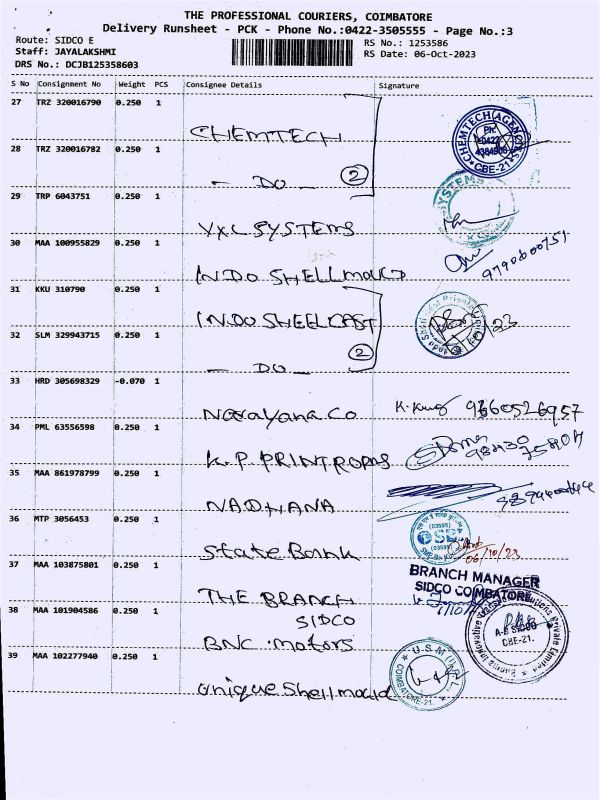 THE PROFESSIONAL COURIERS, COIMBATORE
Delivery Runsheet - PCK - Phone No.:0422-3505555 - Page No.:3
Route: SIDCO E
Staff: JAYALAKSHMI
DRS No.: DCJB125358603
RS No.: 1253586
RS Date: 06-Oct-2023
S No Consignment No Weight PCS Consignee Details Signature
27 TRZ 320016790 0.250 1
CHEMTECH
CHEMTECH AGENCIES
Ph:
0422
CBE-21
28 TRZ 320016782 0.250 1
- DO - 2
29 TRP 6043751 0.250 1
VXL SYSTEMS
SYSTEMS
30 MAA 100955829 0.250 1
INDO SHELLMOULD
9790600751
31 KKU 310790 0.250 1
INDO SHEELCAST
32 SLM 329943715 0.250 1
- DO - 2
33 HRD 305698329 -0.070 1
Narayana Co
34 PML 63556598 0.250 1
K.P. PRINTROPAS
35 MAA 861978799 0.250 1
NADHANA
36 MTP 3056453 0.250 1
State Bank
(03595)
SBI
06/10/23
37 MAA 103875801 0.250 1
THE BRANCH
SIDCO
BRANCH MANAGER
SIDCO COIMBATORE
38 MAA 101904586 0.250 1
BNC motors
A-8 SIDCO
CBE-21.
39 MAA 102277940 0.250 1
Unique Shell mould
U.S.M
COIMBATORE-21.